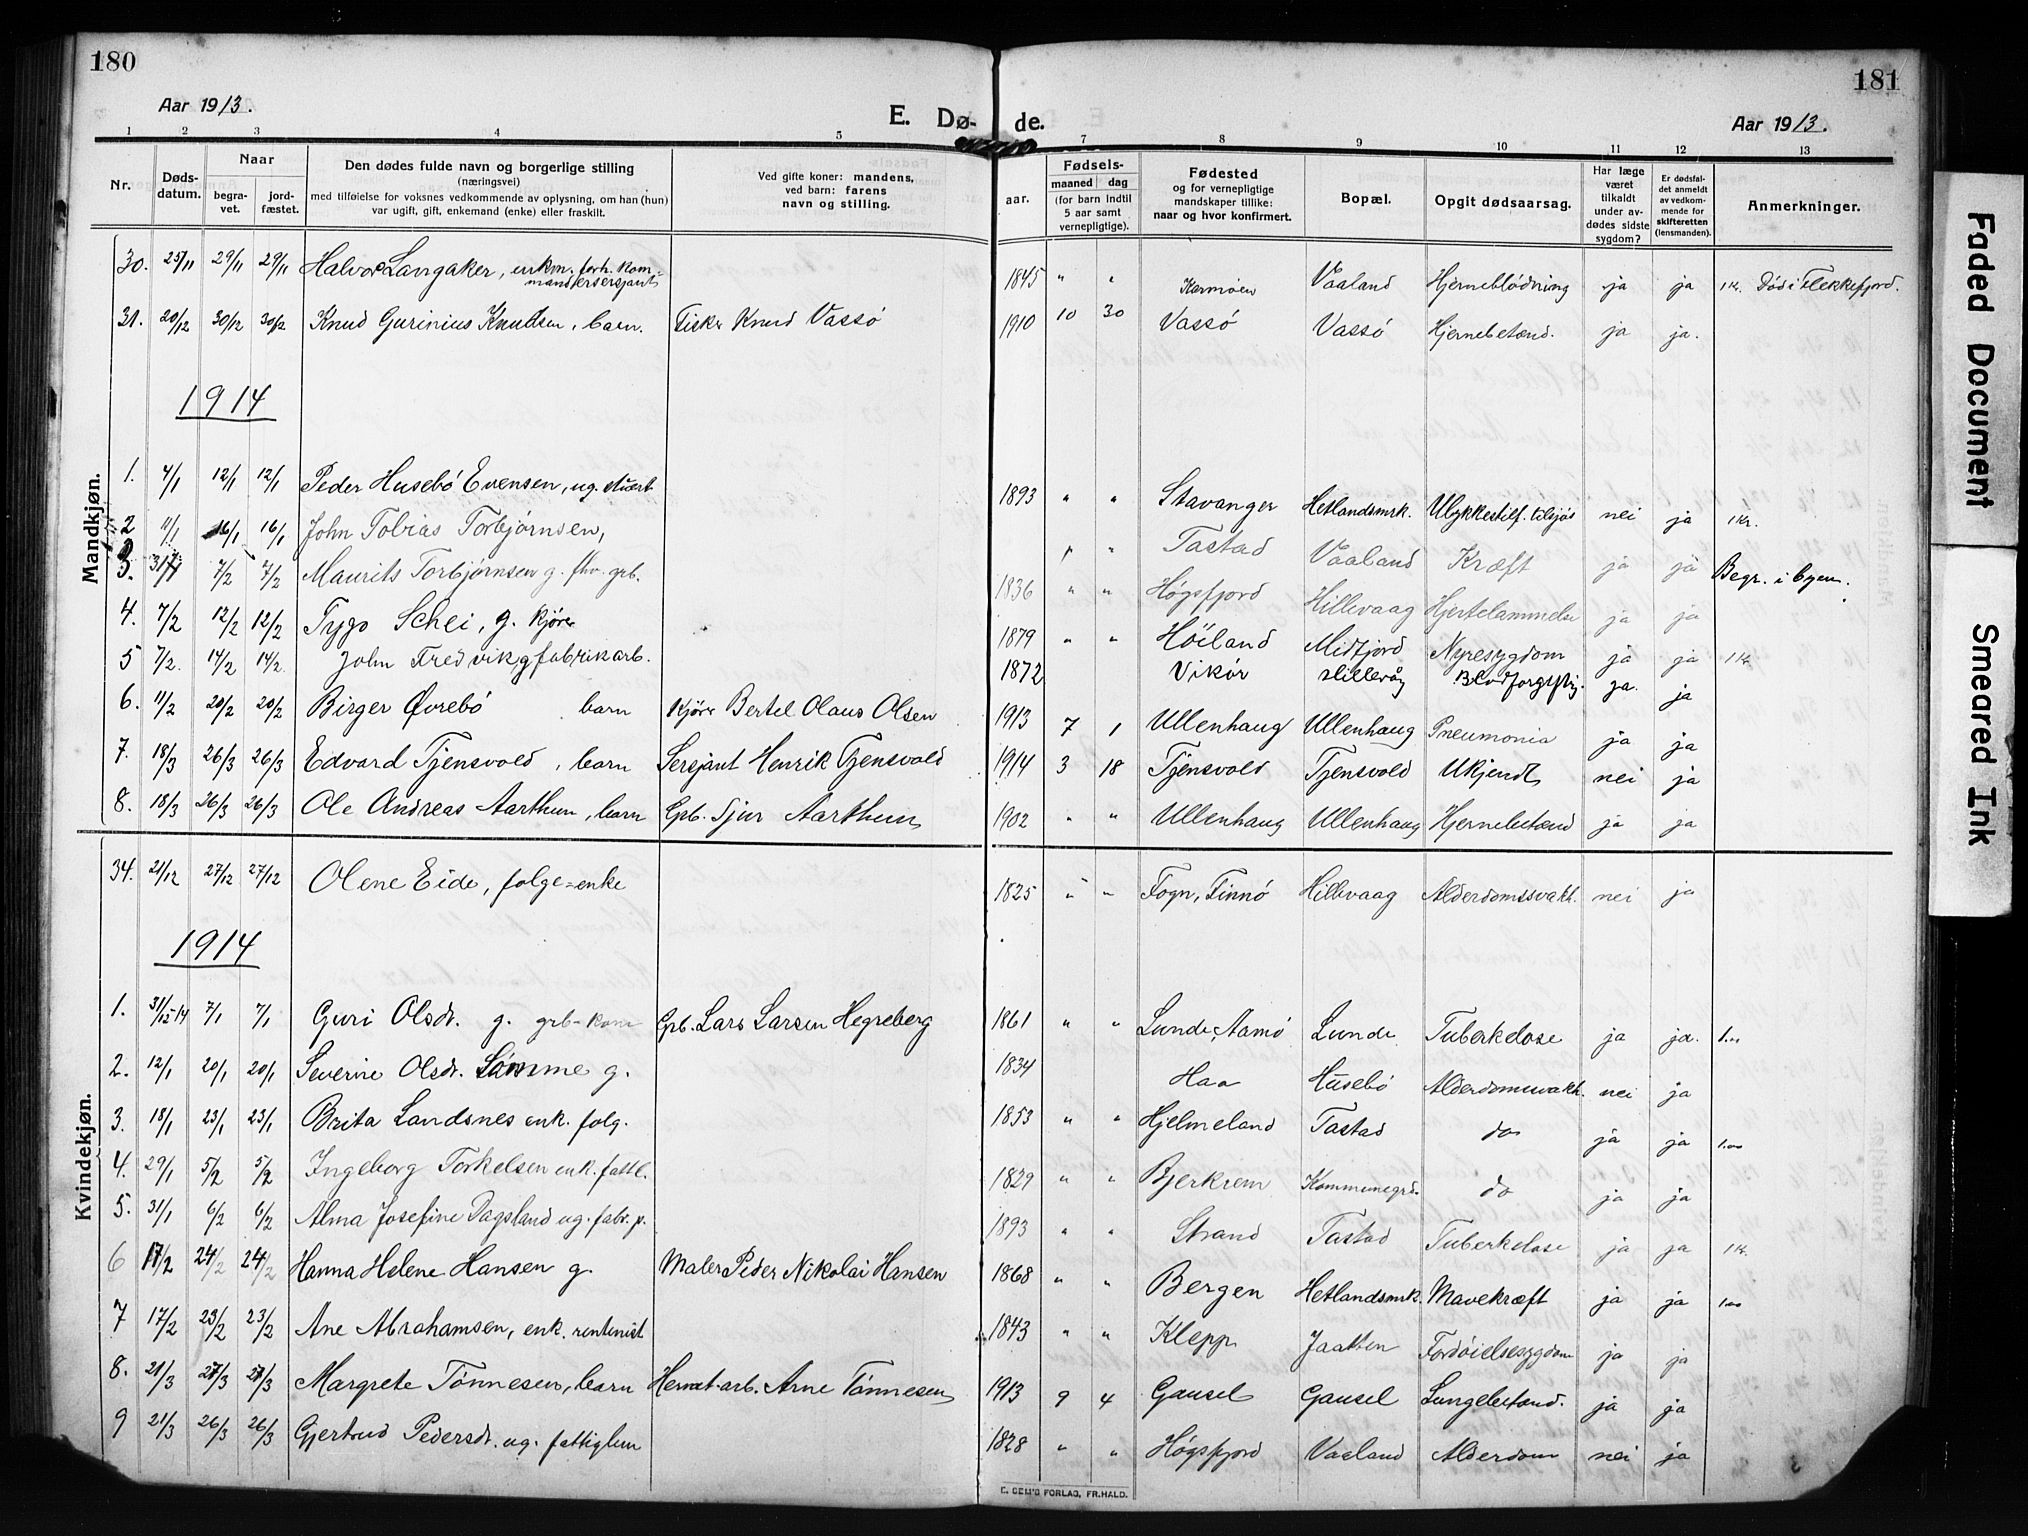 180
181
Aar 1913.
E. Dø- de.
Aar 1913.
1 2 3 4 5 7 8 9 10 11 12 13
Nr. Døds-datum. Naar begra-vet. jord-fæstet. Den dødes fulde navn og borgerlige stilling (næringsvei) med tilføielse for voksnes vedkommende av oplysning, om han (hun) var ugift, gift, enkemand (enke) eller fraskilt. Ved gifte koner: mandens, ved barn: farens navn og stilling. aar. Fødsels- maaned dag (for barn indtil 5 aar samt vernepligtige). Fødested og for vernepligtige mandskaper tillike: naar og hvor konfirmert. Bopæl. Opgit dødsaarsag. Har læge været tilkaldt under av-dødes sidste sygdom? Er dødsfal-det anmeldt av vedkom-mende for skifteretten (lensmanden). Anmerkninger.
Mandkjøn.
30. 25/11 29/11 29/11 Halvor Langaker, enkm. forh. kom-mandersersjant 1845 " " Karmøen Vaaland Hjerneblødning ja ja 1 kr. Død i Flekkefjord.
31. 20/12 30/12 30/12 Knud Gurinius Knudsen, barn. Fisker Knud Vassø 1910 10 30 Vassø Vassø Hjernebetænd. ja ja.
1914
1. 4/1 12/1 12/1 Peder Husebø Evensen, ug. stuert 1893 " " Stavanger Hetlandsmrk. Ulykkestilf. tilsjøs nei ja 1 kr.
2 11/1 16/1 16/1 John Tobias Torbjørnsen, " " Tastad Vaaland Kræft ja ja
3. 31/1 7/2 7/2 Maurits Torbjørnsen g. fhv. grb. 1836 " " Høgsfjord Hillevaag Hjertelammelse ja ja Begr. i byen.
4. 7/2 12/2 12/2 Tygo Schei, g. kjører 1879 " " Höiland Midtjord Nyresygdom ja ja 1 kr.
5 7/2. 14/2 14/2 John Fredvik, g fabrikarb. 1872 Vikør Hillevåg Blodforgiftn. ja. ja
6. 11/2 20/2 20/2 Birger Øvrebø barn Kjører Bertel Olaus Olsen 1913 7 1 Ullenhaug Ullenhaug Pneumonia ja ja
7. 18/3 26/3 26/3 Edvard Tjensvold, barn Sersjant Henrik Tjensvold 1914 3 18 Tjensvold Tjensvold Ukjendt nei ja
8. 18/3 26/3 26/3 Ole Andreas Aarthun, barn Gpb. Sjur Aarthun 1902 " " Ullenhaug Ullenhaug Hjernebetænd ja ja
Kvindekjøn.
34. 21/12 27/12 27/12 Olene Eide, folge=enke 1825 " " Fogn, Finnø Hillevaag Alderdomssvakh. nei ja
1914
1. 31/12-14 7/1 7/1 Guri Olsdr. g. grb-kone Gpb. Lars Larsen Hegreberg 1861 " " Lunde, Aamø Lunde Tuberkelose ja ja. 1.00
2. 12/1 20/1 20/1 Severine Olsdr. Sömme g. 1834 Haa Husebø Alderdomssvakh. nei ja
3. 18/1 23/1 23/1 Brita Landsnes enk. folg. 1853 " " Hjelmeland Tastad do ja ja 1.00
4. 29/1 5/2 5/2 Ingeborg Torkelsen enk. fattl. 1829 " " Bjerkrem Kommunegrd. do ja ja
5. 31/1 6/2 6/2 Alma Josefine Dagsland ug. fabr. p. 1893 " " Strand Tastad Tuberkelose ja ja 1 kr.
6 17/2 24/2 24/2 Hanna Helene Hansen g. Maler Peder Nikolai Hansen 1868 " " Bergen Hetlandsmrk. Mavekræft ja ja 1.00
7 17/2 23/2 23/2 Ane Abrahamsen, enk. rentenist 1843 " " Klepp Jaatten Fordøielsesygdom ja ja
8. 21/3 27/3 27/3 Margrete Tönnesen, barn Hermet.arb. Arne Tönnesen 1913 9 4 Gausel Gausel Lungebetænd. ja ja
9 21/3 26/3 26/3 Gjertrud Pedersdr. ug. fattiglem 1828 " " Høgsfjord Vaaland Alderdom nei ja
E. SEM'S FORLAG, FR.HALD.
Faded Document
Smeared Ink